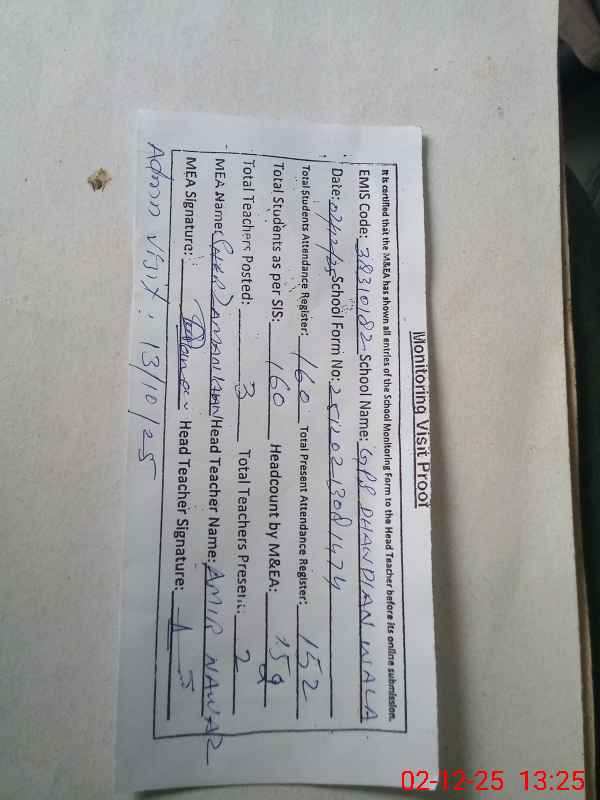 Monitoring Visit Proof
It is certified that the M&EA has shown all entries of the School Monitoring Form to the Head Teacher before its online submission.
EMIS Code: 38310182 School Name: GPS DHANDIAN WALA
Date: 02/12/25 School Form No: 25120213081474
Total Students Attendance Register: 160 Total Present Attendance Register: 152
Total Students as per SIS: 160 Headcount by M&EA:
Total Teachers Posted: 3 Total Teachers Present: 2
MEA Name: SHER ZAMAN KHAN Head Teacher Name: AMIR NAWAZ
MEA Signature: Head Teacher Signature:
Admn Visit: 13/10/25
02-12-25 13:25